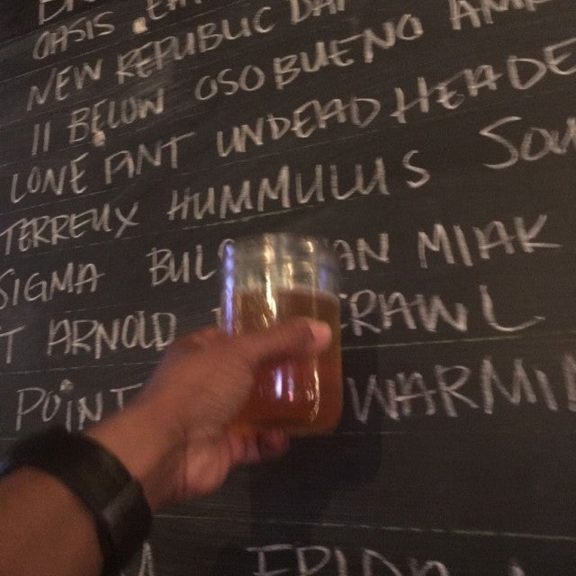 OASIS
NEW REPUBLIC DAY
11 BELOW OSO BUENO AM
LONE PINT UNDEAD HEADE
TERREUX HUMMULUS SOU
SIGMA BUL AN MIAK
T ARNOLD CRAWL
POINT WARMI
FRIDA